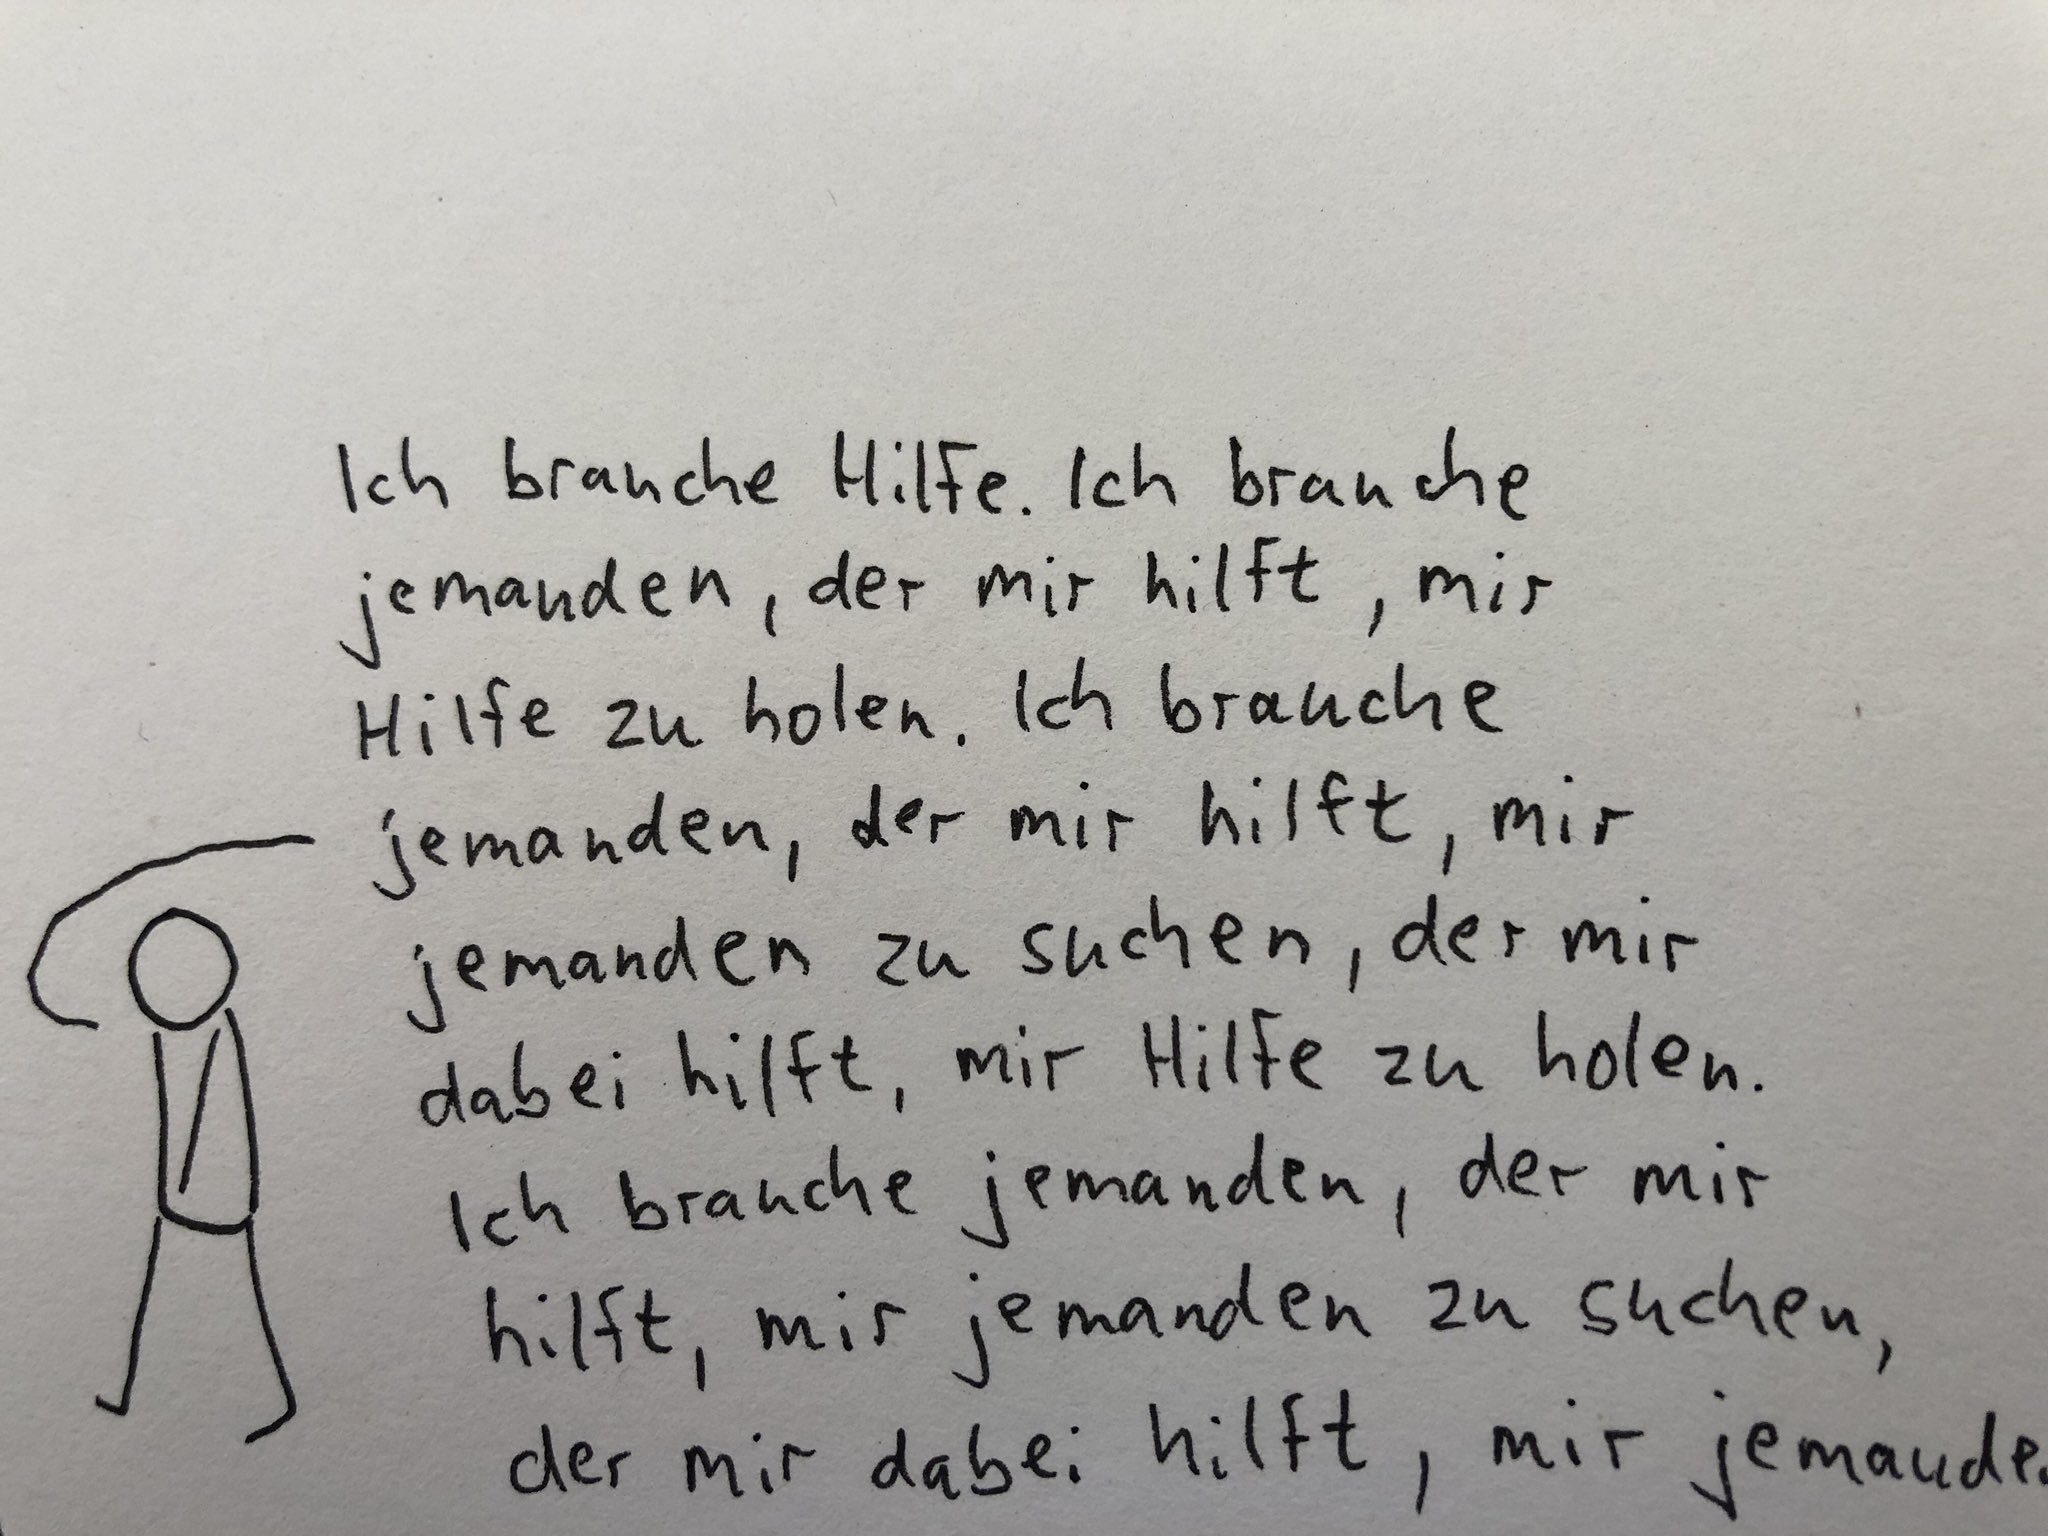 Ich brauche Hilfe. Ich brauche
jemanden, der mir hilft, mir
Hilfe zu holen. Ich brauche
jemanden, der mir hilft, mir
jemanden zu suchen, der mir
dabei hilft, mir Hilfe zu holen.
Ich brauche jemanden, der mir
hilft, mir jemanden zu suchen,
der mir dabei hilft, mir jemande